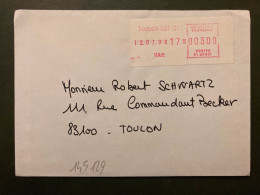 12.07.90 17H 00300
Monsieur Robert SCHWARTZ
111 Rue Commandant Becker
83100 - TOULON
145129